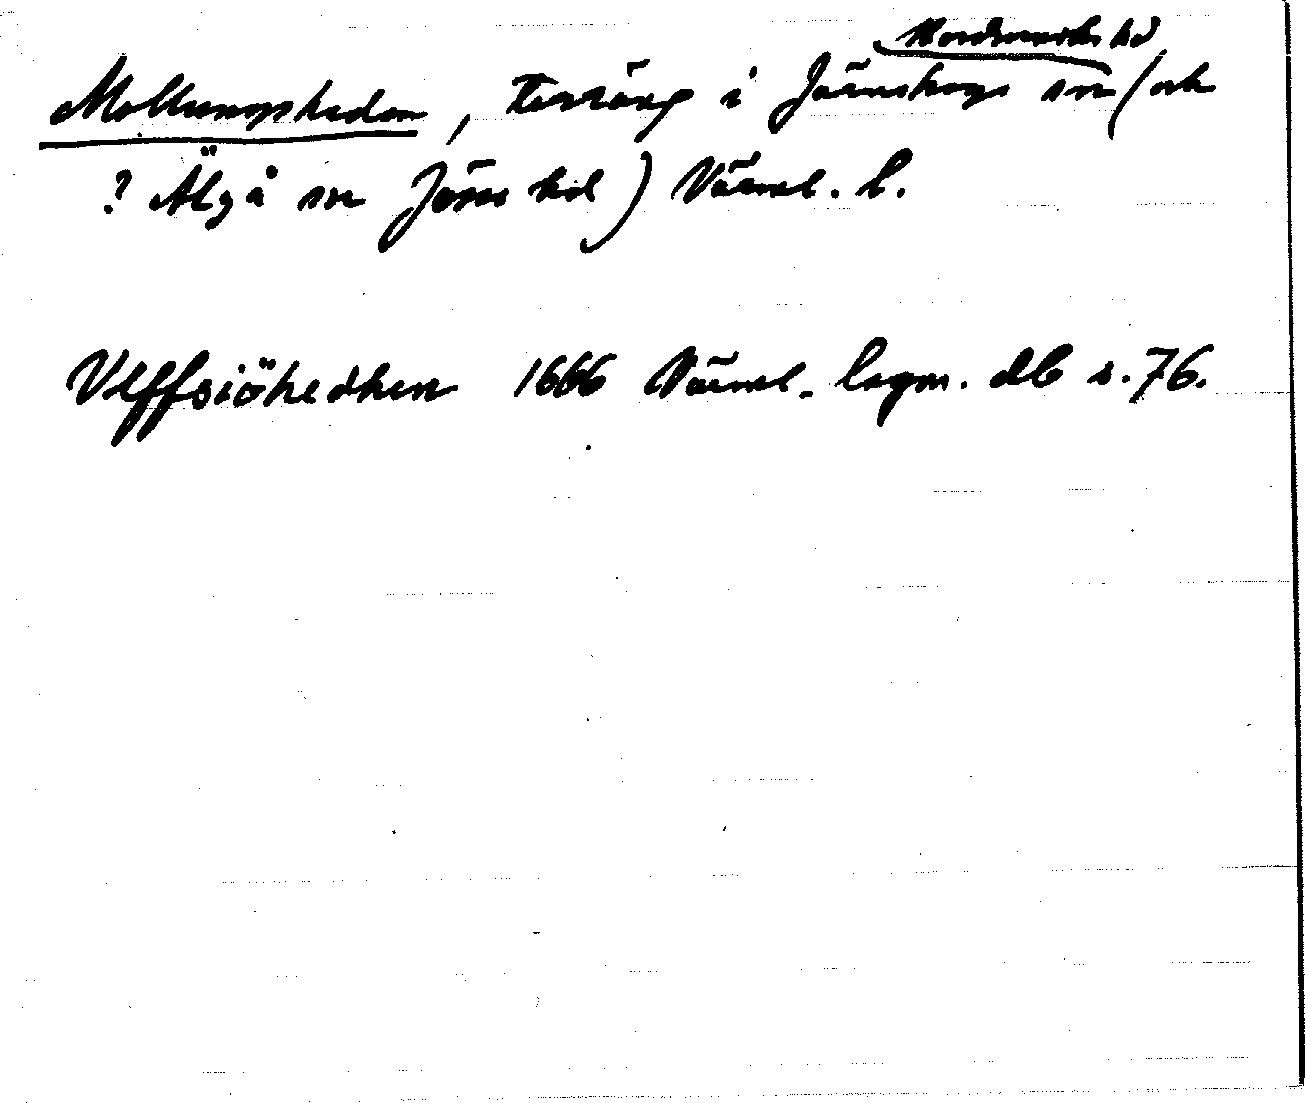 Nordmarks hd
Mollungsheden, terräng i Järnskogs sn (och
? Älgå sn Jösse hd) Värml. l.
Vlffsiöhedhen 1666 Värml. lagm. db s. 76.